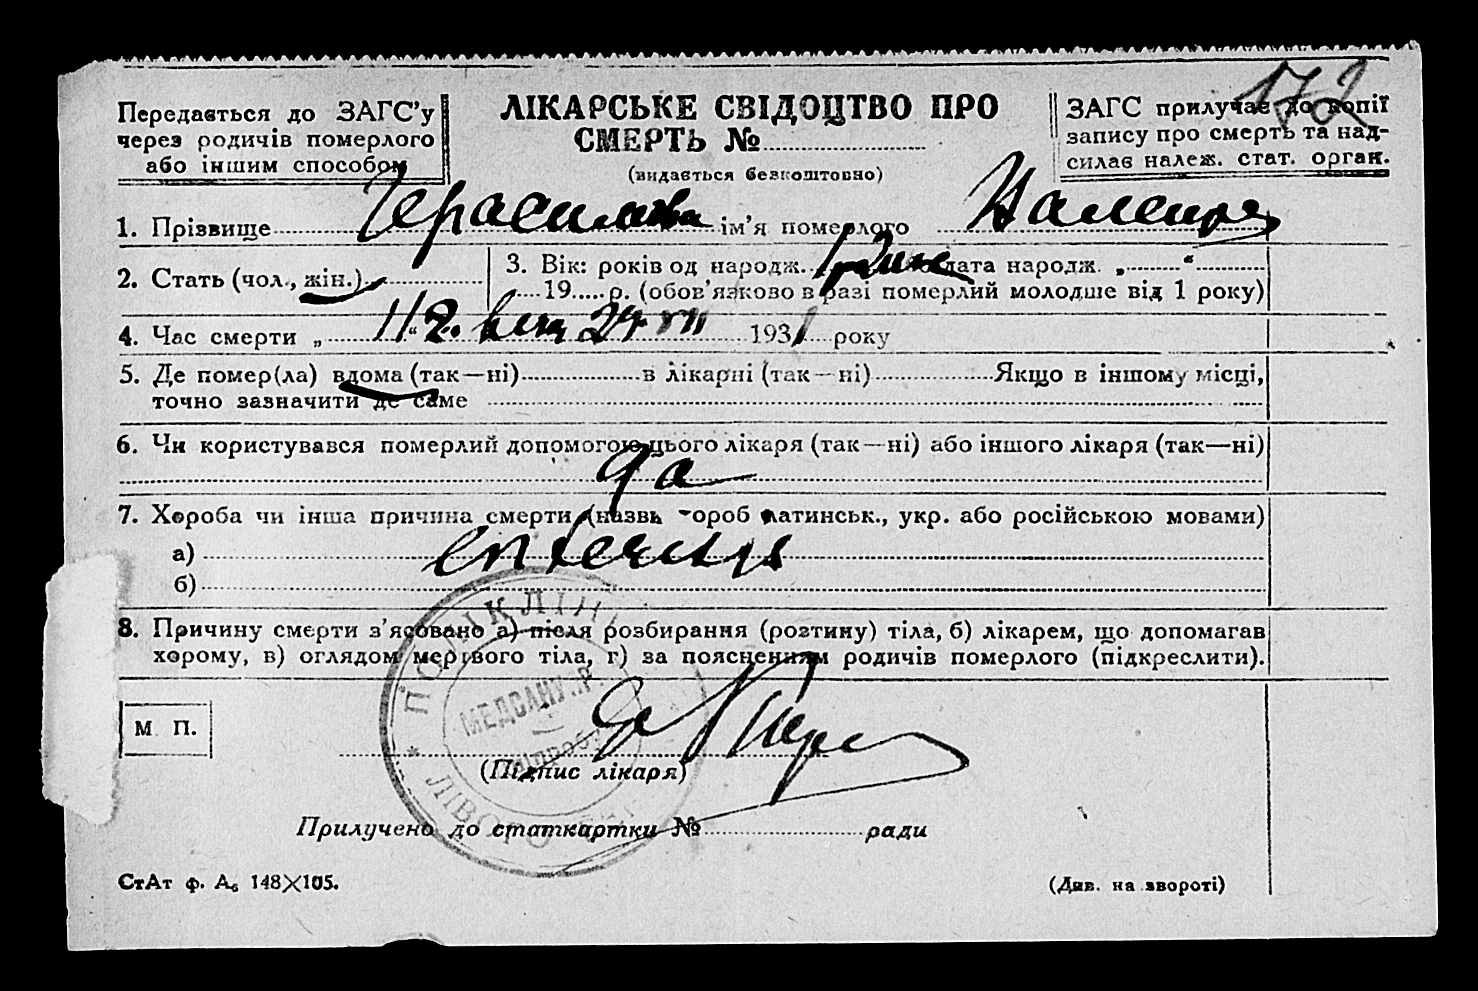 172
Передається до ЗАГС'у
через родичів померлого
або іншим способом
ЛІКАРСЬКЕ СВІДОЦТВО ПРО
СМЕРТЬ №
(видається безкоштовно)
ЗАГС прилучає до копії
запису про смерть та над-
силає належ. стат. орган.
1. Прізвище Герасимова ім'я померлого
2. Стать (чол., жін.)
3. Вік: років од народж. дата народж. „ “
19 р. (обов'язково в разі померлий молодше від 1 року)
4. Час смерти „ “ 24 VII 1931 року
5. Де помер(ла) вдома (так—ні) в лікарні (так—ні) Якщо в іншому місці,
точно зазначити де саме
6. Чи користувався померлий допомогою цього лікаря (так—ні) або іншого лікаря (так—ні)
да
7. Хороба чи інша причина смерти (назви хороб латинськ., укр. або російською мовами)
а)
б)
8. Причину смерти з'ясовано а) після розбирання (розтину) тіла, б) лікарем, що допомагав
хорому, в) оглядом мертвого тіла, г) за поясненням родичів померлого (підкреслити).
М. П.
(Підпис лікаря)
Прилучено до статкартки № ради
СтАт ф. А₆ 148×105.
(Див. на звороті)